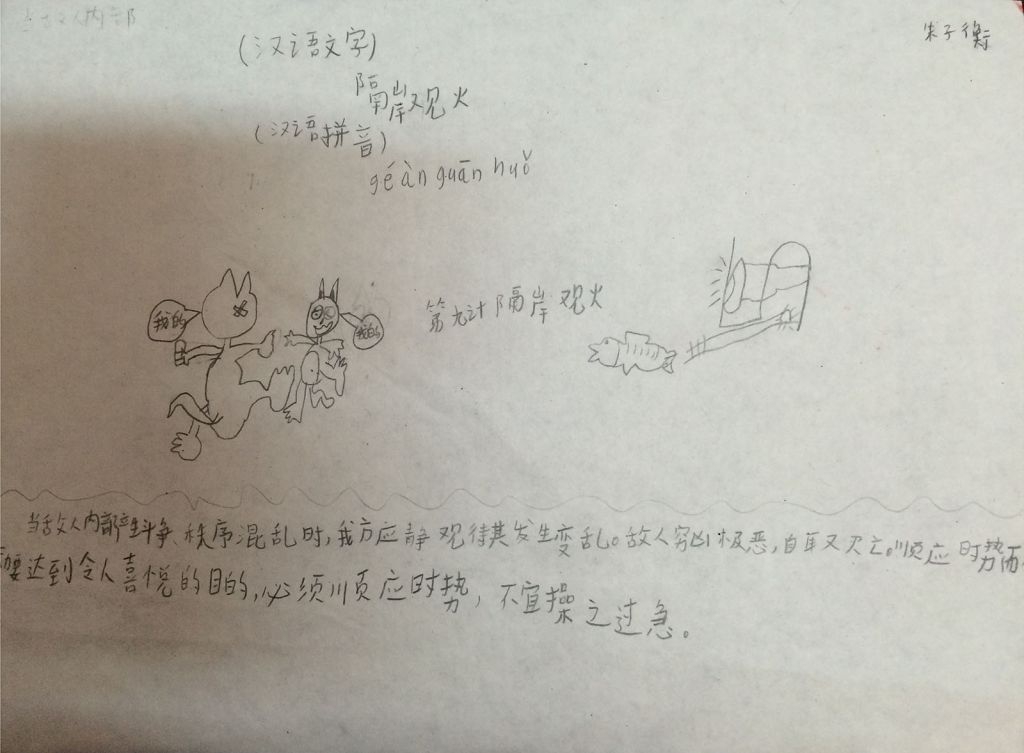 当敌人内部
朱子衡
(汉语文字)
隔岸观火
(汉语拼音)
géàn guān huǒ
我的
我的
第九计 隔岸观火
当敌人内部产生斗争、秩序混乱时,我方应静观待其发生变乱。敌人穷凶极恶,自取灭亡。顺应时势而
要达到令人喜悦的目的,必须顺应时势,不宜操之过急。